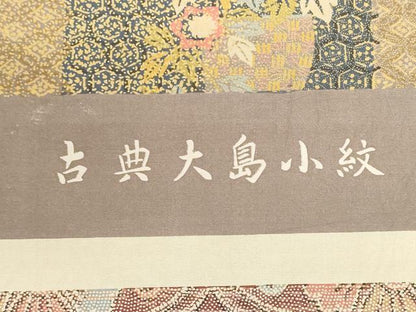 古典大島小紋